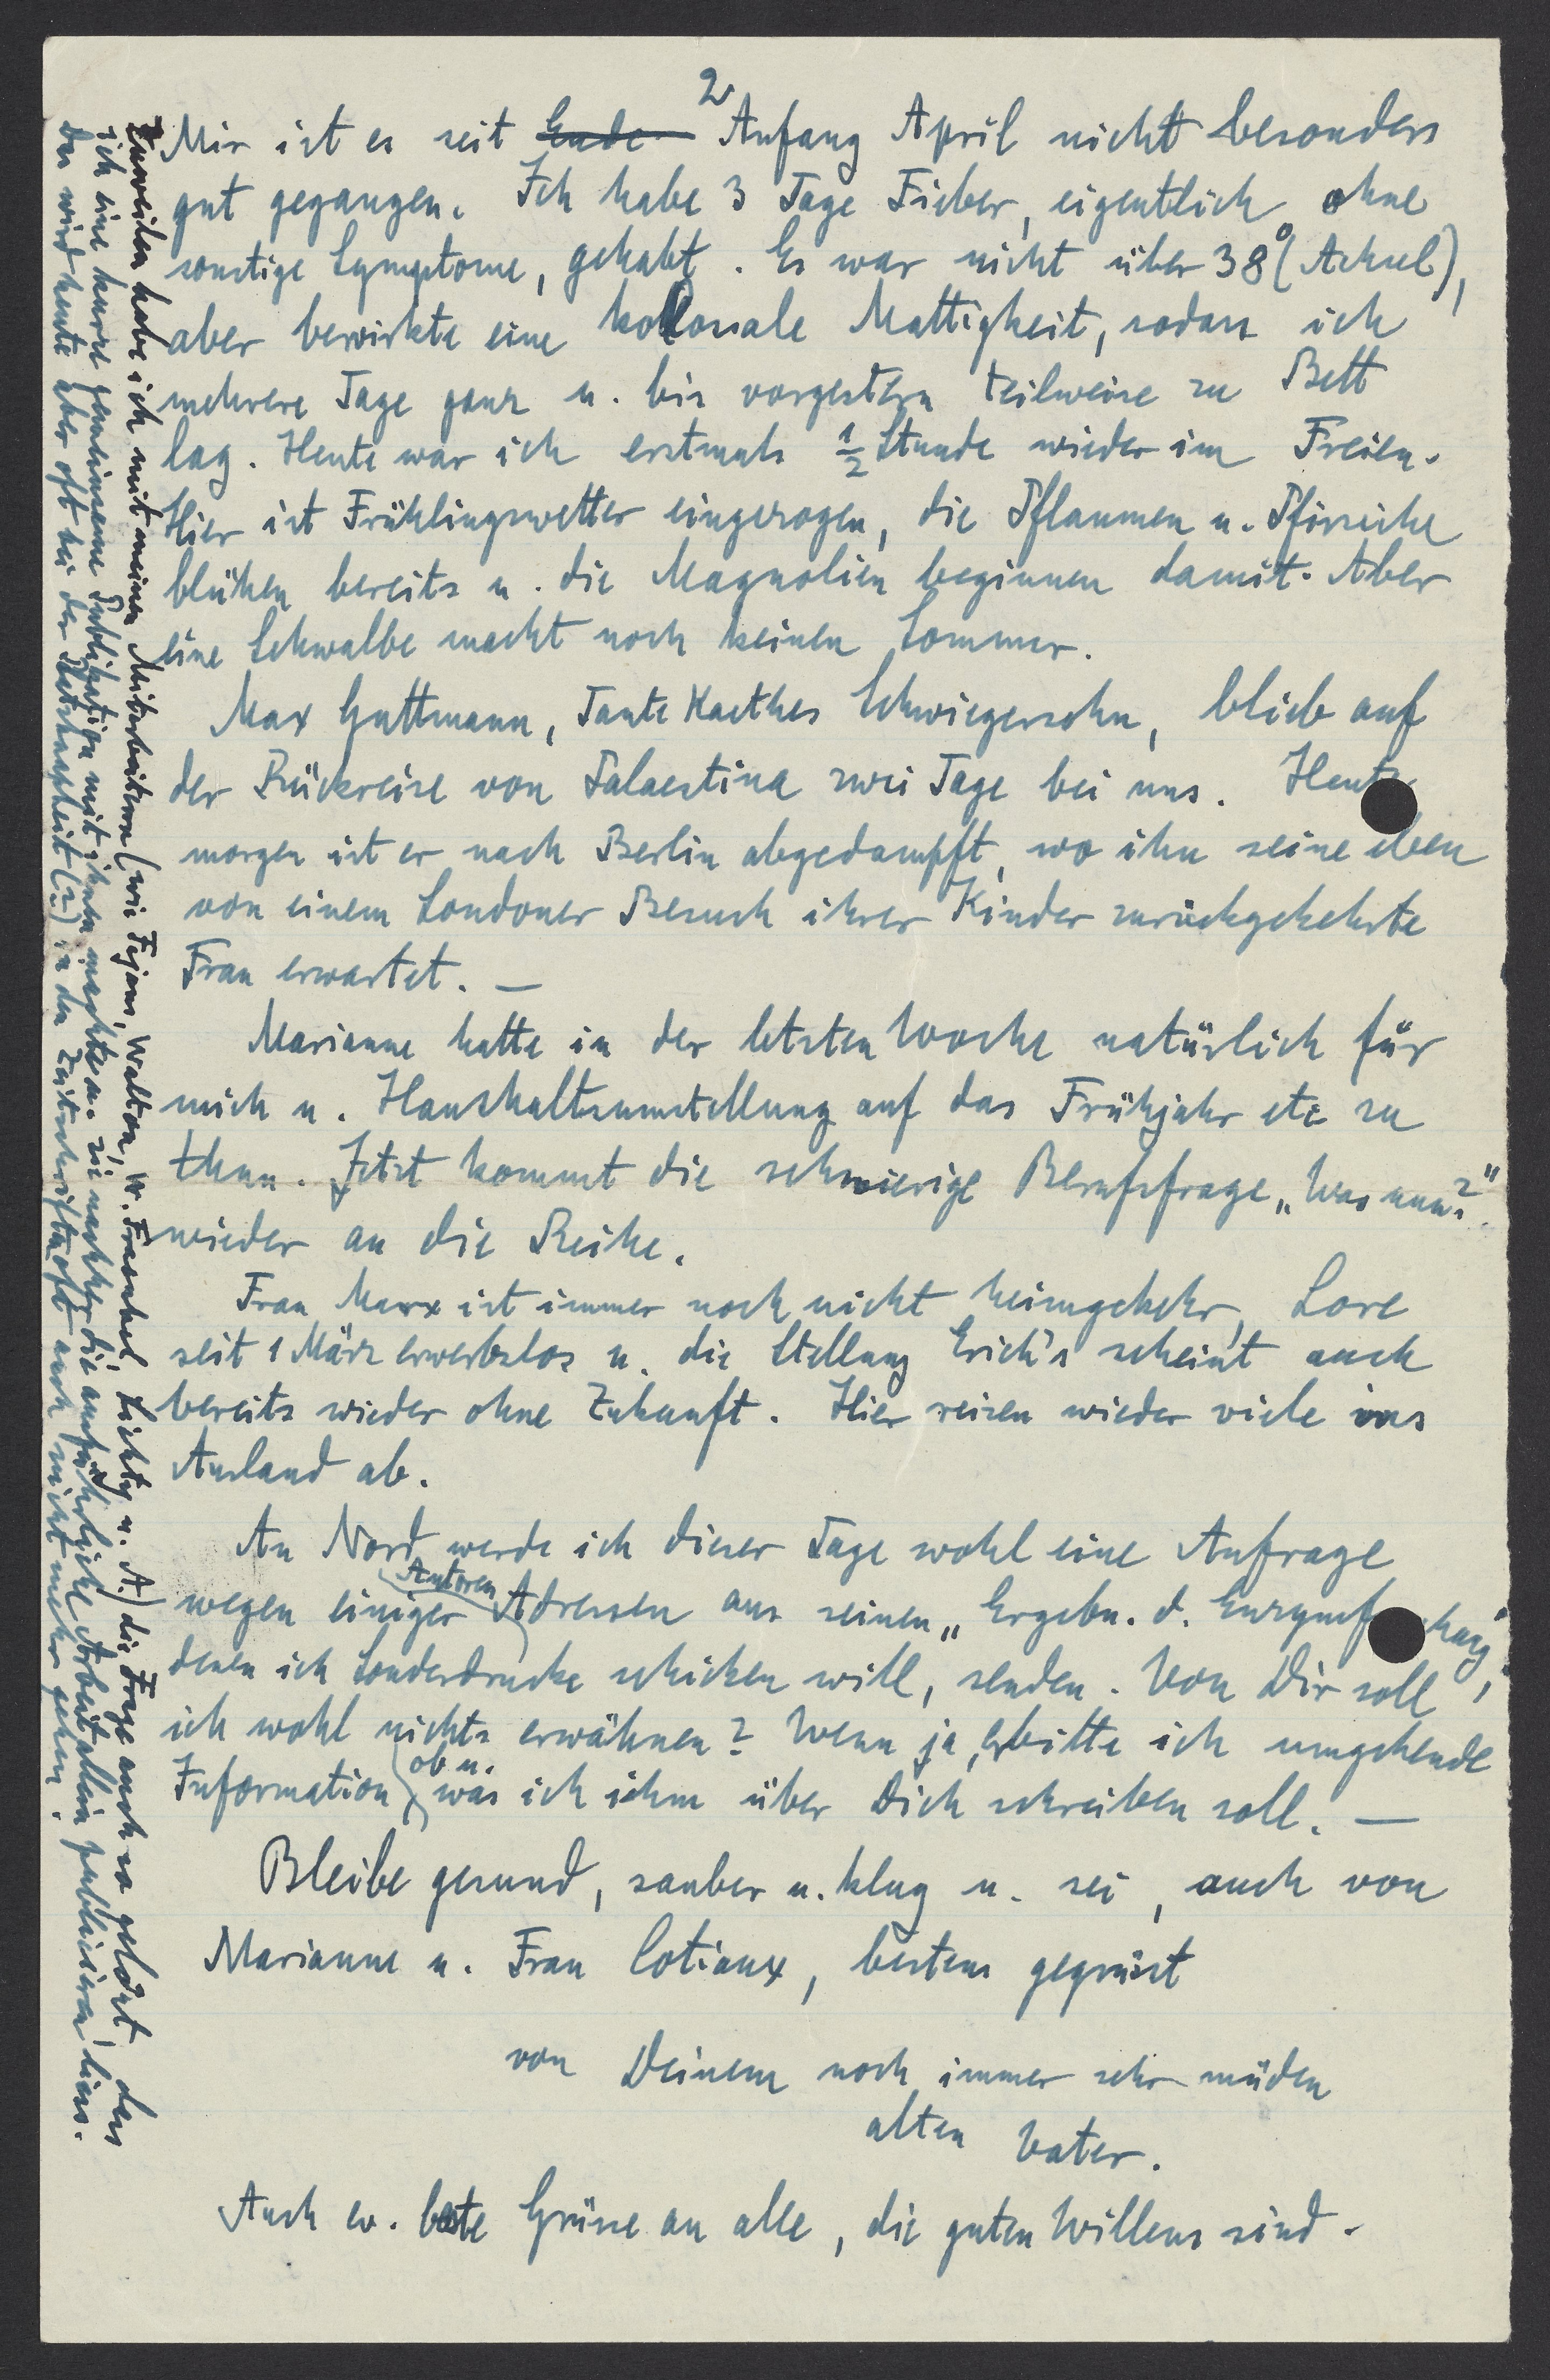 2
Mir ist es seit Ende Anfang April nicht besonders
gut gegangen. Ich habe 3 Tage Fieber, eigentlich ohne
sonstige Symptome, gehabt. Es war nicht über 38° (Achsel),
aber bewirkte eine kollosale Mattigkeit, sodass ich
mehrere Tage ganz u. bis vorgestern teilweise zu Bett
lag. Heute war ich erstmals ½ Stunde wieder im Freien.
Hier ist Frühlingswetter eingezogen, die Pflaumen u. Pfirsiche
blühen bereits u. die Magnolien beginnen damit. Aber
eine Schwalbe macht noch keinen Sommer.
Max Guttmann, Tante Kaethes Schwiegersohn, blieb auf
der Rückreise von Palaestina zwei Tage bei uns. Heute
morgen ist er nach Berlin abgedampft, wo ihn seine eben
von einem Londoner Besuch ihrer Kinder zurückgekehrte
Frau erwartet. —
Marianne hatte in der letzten Woche natürlich für
mich u. Haushaltsumstellung auf das Frühjahr etc zu
thun. Jetzt kommt die schwierige Berufsfrage „Was nun?"
wieder an die Reihe.
Frau Marx ist immer noch nicht heimgekehr, Lore
seit 1 März erwerbslos u. die Stellung Erich's scheint auch
bereits wieder ohne Zukunft. Hier reisen wieder viele ins
Ausland ab.
An Nord werde ich dieser Tage wohl eine Anfrage
wegen einiger Autoren Adressen aus seinen „Ergebn. d. Enzymf chung",
denen ich Sonderdrucke schicken will, senden. Von Dir soll
ich wohl nichts erwähnen? Wenn ja, erbitte ich umgehende
Information ob u. was ich ihm über Dich schreiben soll. —
Bleibe gesund, sauber u. klug u. sei, auch von
Marianne u. Frau Cotiaux, bestens gegrüsst
von Deinem noch immer sehr müden
alten Vater.
Auch ev. beste Grüsse an alle, die guten Willens sind.
Zuweilen habe ich mit meinen Mitarbeitern (wie Fajans, Walton, W. Fraenkel, Lichty u. A.) die Frage auch so gelöst, dass
ich eine kurze gemeinsame Publikation mit ihnen machte u. sie nachher die ausführliche Arbeit allein publizieren liess.
Das wird heute aber oft bei der (?) in den Zeitschriften oft auch nicht mehr gehen.